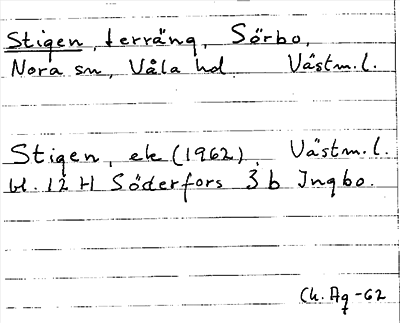 Stigen, terräng, Sörbo,
Nora sn, Våla hd Västm.l.
Stigen, ek (1962), Västm.l.
bl. 12 H Söderfors 3 b Ingbo.
Ch. Ag -62